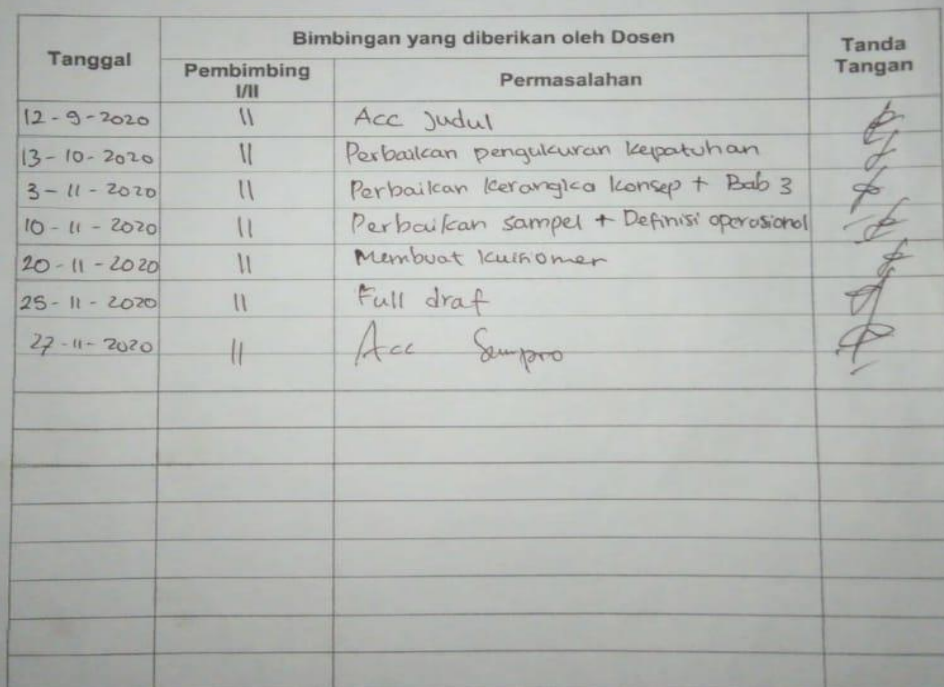 Tanggal Bimbingan yang diberikan oleh Dosen Tanda Tangan
Pembimbing I/II Permasalahan
12-9-2020 II Acc Judul
13-10-2020 II Perbaikan pengukuran kepatuhan
3-11-2020 II Perbaikan kerangka konsep + Bab 3
10-11-2020 II Perbaikan sampel + Definisi operasional
20-11-2020 II Membuat
25-11-2020 II Full draf
27-11-2020 II Acc Sempro